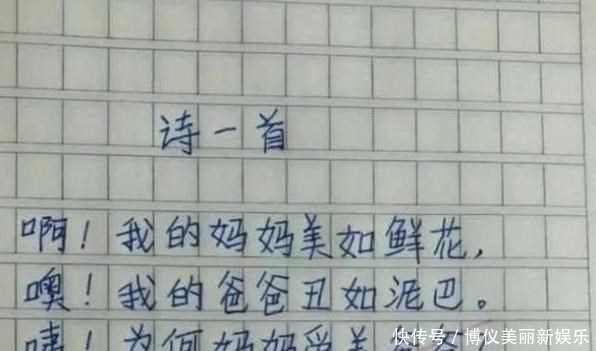 诗一首
啊！我的妈妈美如鲜花，
噢！我的爸爸丑如泥巴。
咦！为何妈妈
快传号／博仪美丽新娱乐